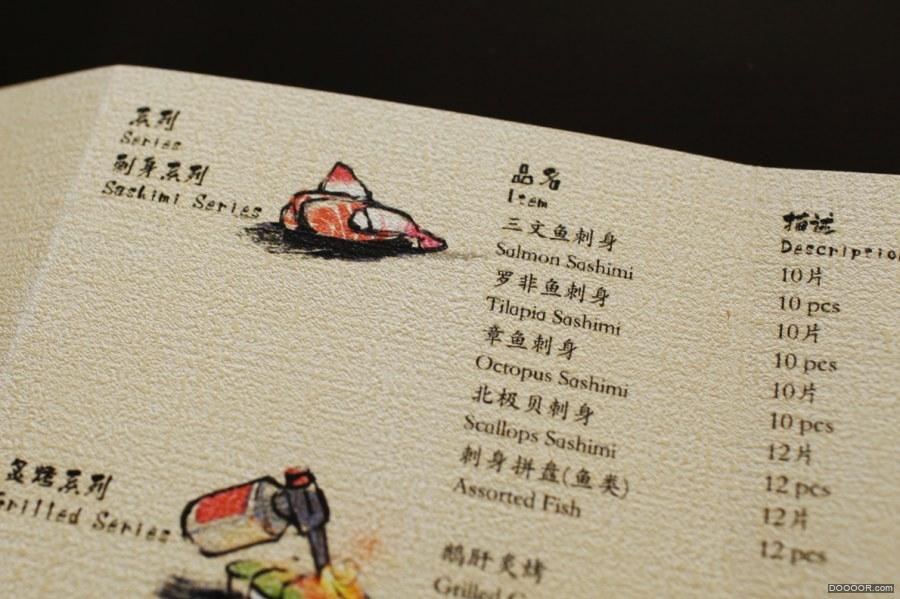 系列
Series
刺身系列
Sashimi Series
品名
Item
三文鱼刺身
Salmon Sashimi
罗非鱼刺身
Tilapia Sashimi
章鱼刺身
Octopus Sashimi
北极贝刺身
Scallops Sashimi
刺身拼盘(鱼类)
Assorted Fish
描述
Description
10片
10 pcs
10片
10 pcs
10片
10 pcs
12片
12 pcs
12片
12 pcs
炙烤系列
Grilled Series
鹅肝炙烤
Grilled
DOOOOR.COM